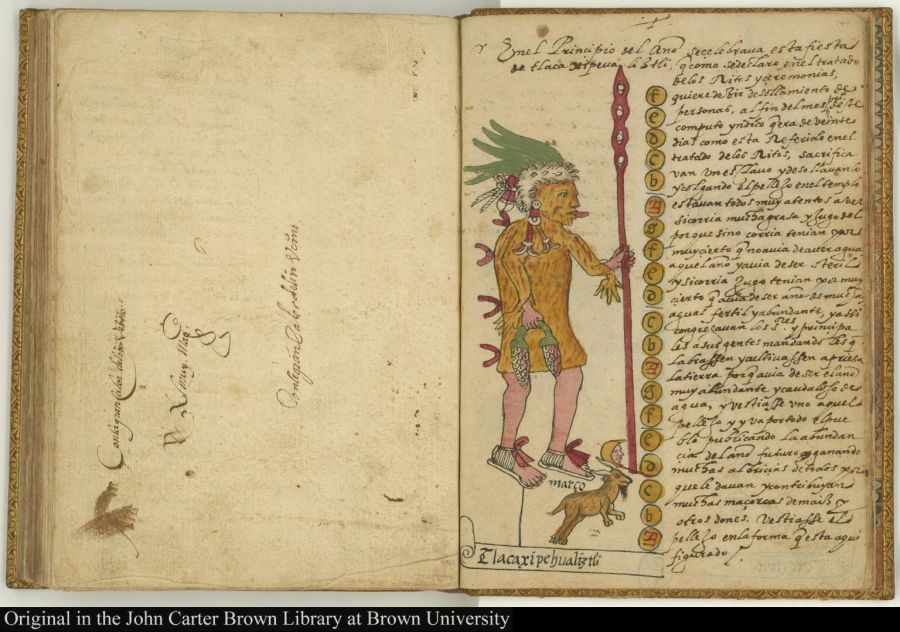 En el Principio del Año se celebrava esta fiesta
de tlaca xipeva liztli, q como se declaro en el tratado
de los Ritos y ceremonias,
quiere dezir desollamiento de
personas, al fin del mes
computo yndico q era de veinte
dias como esta Referido en el
tratado de los Ritos, sacrifica
van un esclavo y desollavanlo
y colgando el pellejo en el templo
estavan todos muy atentos a ver
si corria mucha grasa y jugo del
porque sino corria tenian por
muy cierto q no avia de aver agua
aquel año y avia de ser esteril
y si corria jugo tenian por muy
cierto q avia de ser año de mucha
aguas fertil y abundante, y assi
congregavan los sres y principa
les a sus gentes mandandoles q
labrassen y cultivassen apriesa
la tierra porq avia de ser el año
muy abundante y caudaloso de
agua, y vestiasse uno aquel
pellejo y yva por todo el pue
blo publicando la abundan
cia del año futuro y ganando
muchas albricias de todos por
que le davan y contribuyan
muchas maçorcas de maiz y
otros dones. Vestiasse el
pellejo en la forma q esta aqui
figurado
f
e
d
c
b
A
g
f
e
d
c
b
A
g
f
e
d
c
b
A
março
Tlacaxipehualiztli
Original in the John Carter Brown Library at Brown University